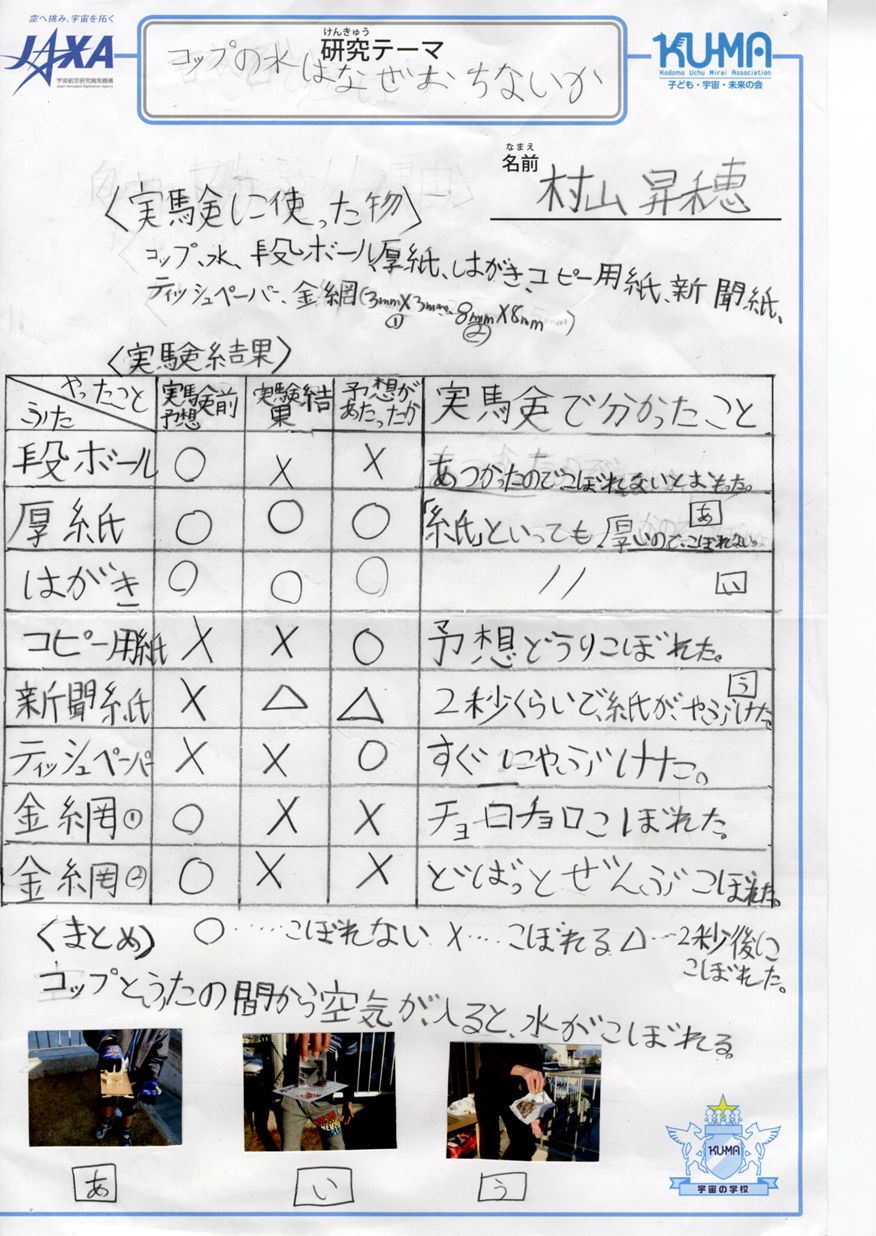 空へ挑み、宇宙を拓く
JAXA
宇宙航空研究開発機構
Japan Aerospace Exploration Agency
けんきゅう
研究テーマ
コップの水はなぜおちないか
KU-MA
Kodomo Uchu Mirai Association
子ども・宇宙・未来の会
なまえ
名前 村山昇穂
〈実験に使った物〉
コップ、水、段ボール、厚紙、はがき、コピー用紙、新聞紙、
ティッシュペーパー、金網(3mm×3mm、8mm×8mm)
① ②
〈実験結果〉
やったこと ふた 実験前予想 実験結果 予想があたったか 実験で分かったこと
段ボール ○ × × あつかったのでこぼれないとおもった。
厚紙 ○ ○ ○ 「紙」といっても、厚いのでこぼれない。 あ
はがき ○ ○ ○ 〃 い
コピー用紙 × × ○ 予想どうりこぼれた。
新聞紙 × △ △ 2秒くらいで、紙が、やぶけた。 う
ティッシュペーパー × × ○ すぐにやぶけた。
金網① ○ × × チョロチョロこぼれた。
金網② ○ × × どばっとぜんぶこぼれた。
〈まとめ〉 ○……こぼれない ×……こぼれる △…2秒後に
こぼれた。
コップとふたの間から空気が入ると、水がこぼれる。
あ い う
KU-MA
宇宙の学校